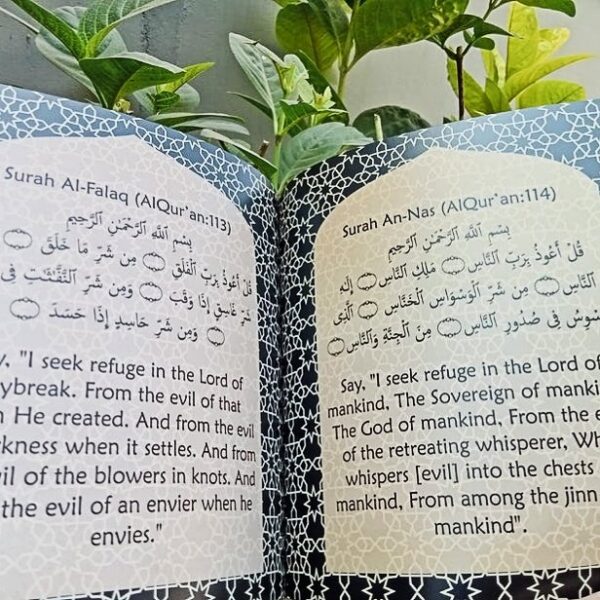 Surah Al-Falaq (AlQur'an:113)
بِسْمِ اللَّهِ الرَّحْمَٰنِ الرَّحِيمِ
قُلْ أَعُوذُ بِرَبِّ الْفَلَقِ ۝ مِن شَرِّ مَا خَلَقَ ۝
شَرِّ غَاسِقٍ إِذَا وَقَبَ ۝ وَمِن شَرِّ النَّفَّٰثَٰتِ فِى
۝ وَمِن شَرِّ حَاسِدٍ إِذَا حَسَدَ ۝
"I seek refuge in the Lord of
From the evil of that
He created. And from the evil
when it settles. And from
of the blowers in knots. And
the evil of an envier when he
envies."
Surah An-Nas (AlQur'an:114)
بِسْمِ اللَّهِ الرَّحْمَٰنِ الرَّحِيمِ
قُلْ أَعُوذُ بِرَبِّ النَّاسِ ۝ مَلِكِ النَّاسِ ۝ إِلَٰهِ
النَّاسِ ۝ مِن شَرِّ الْوَسْوَاسِ الْخَنَّاسِ ۝ الَّذِى
فِى صُدُورِ النَّاسِ ۝ مِنَ الْجِنَّةِ وَالنَّاسِ ۝
Say, "I seek refuge in the Lord of
mankind, The Sovereign of
The God of mankind, From the
of the retreating whisperer,
whispers [evil] into the chests
mankind, From among the jinn
mankind".